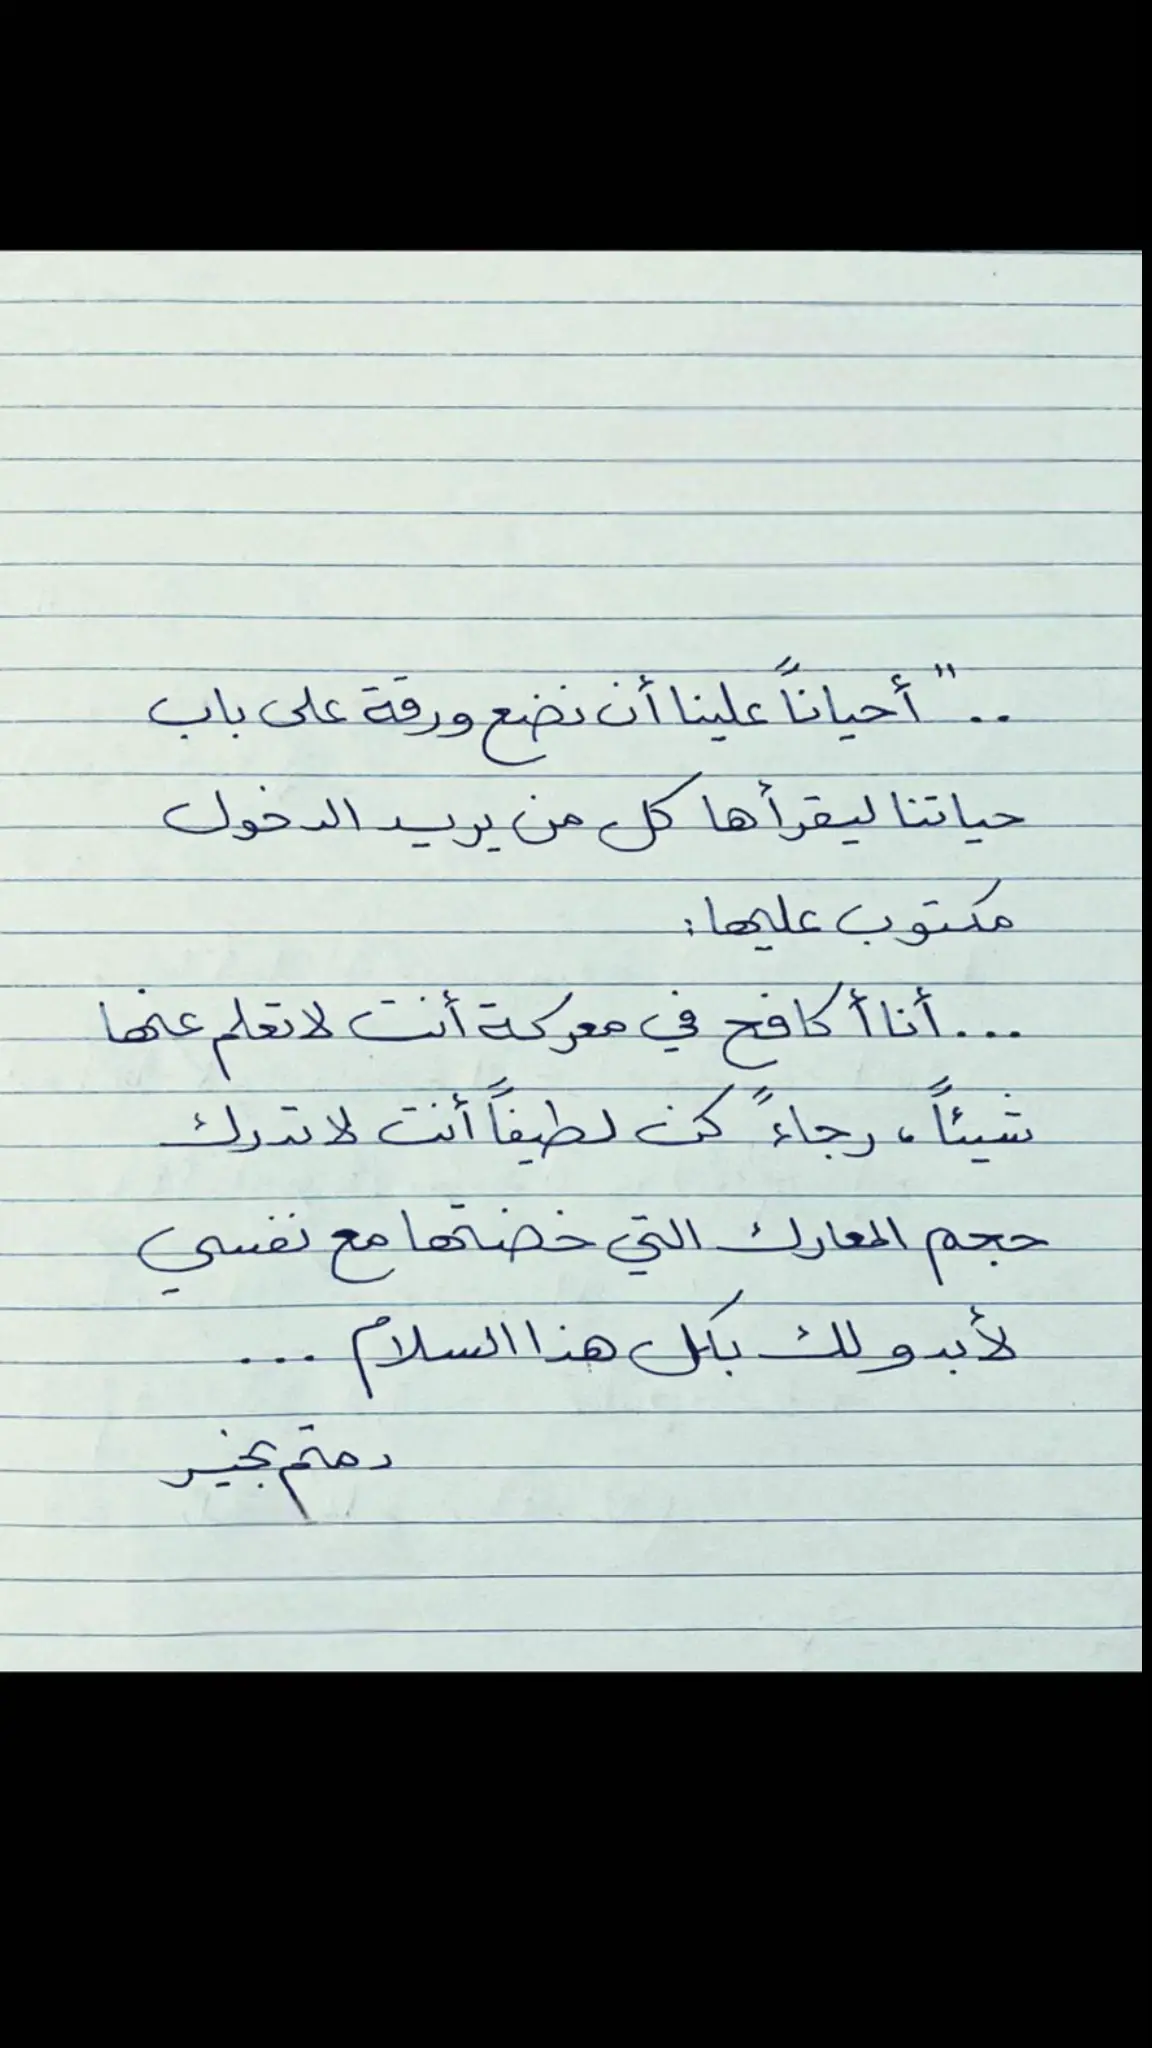 .. " أحياناً علينا أن نضع ورقة على باب
حياتنا ليقرأها كل من يريد الدخول
مكتوب عليها:
... أنا أكافح في معركة أنت لا تعلم عنها
شيئاً، رجاءً كن لطيفاً أنت لا تدرك
حجم المعارك التي خضتها مع نفسي
لأبدو لك بكل هذا السلام ...
دمتم بخير